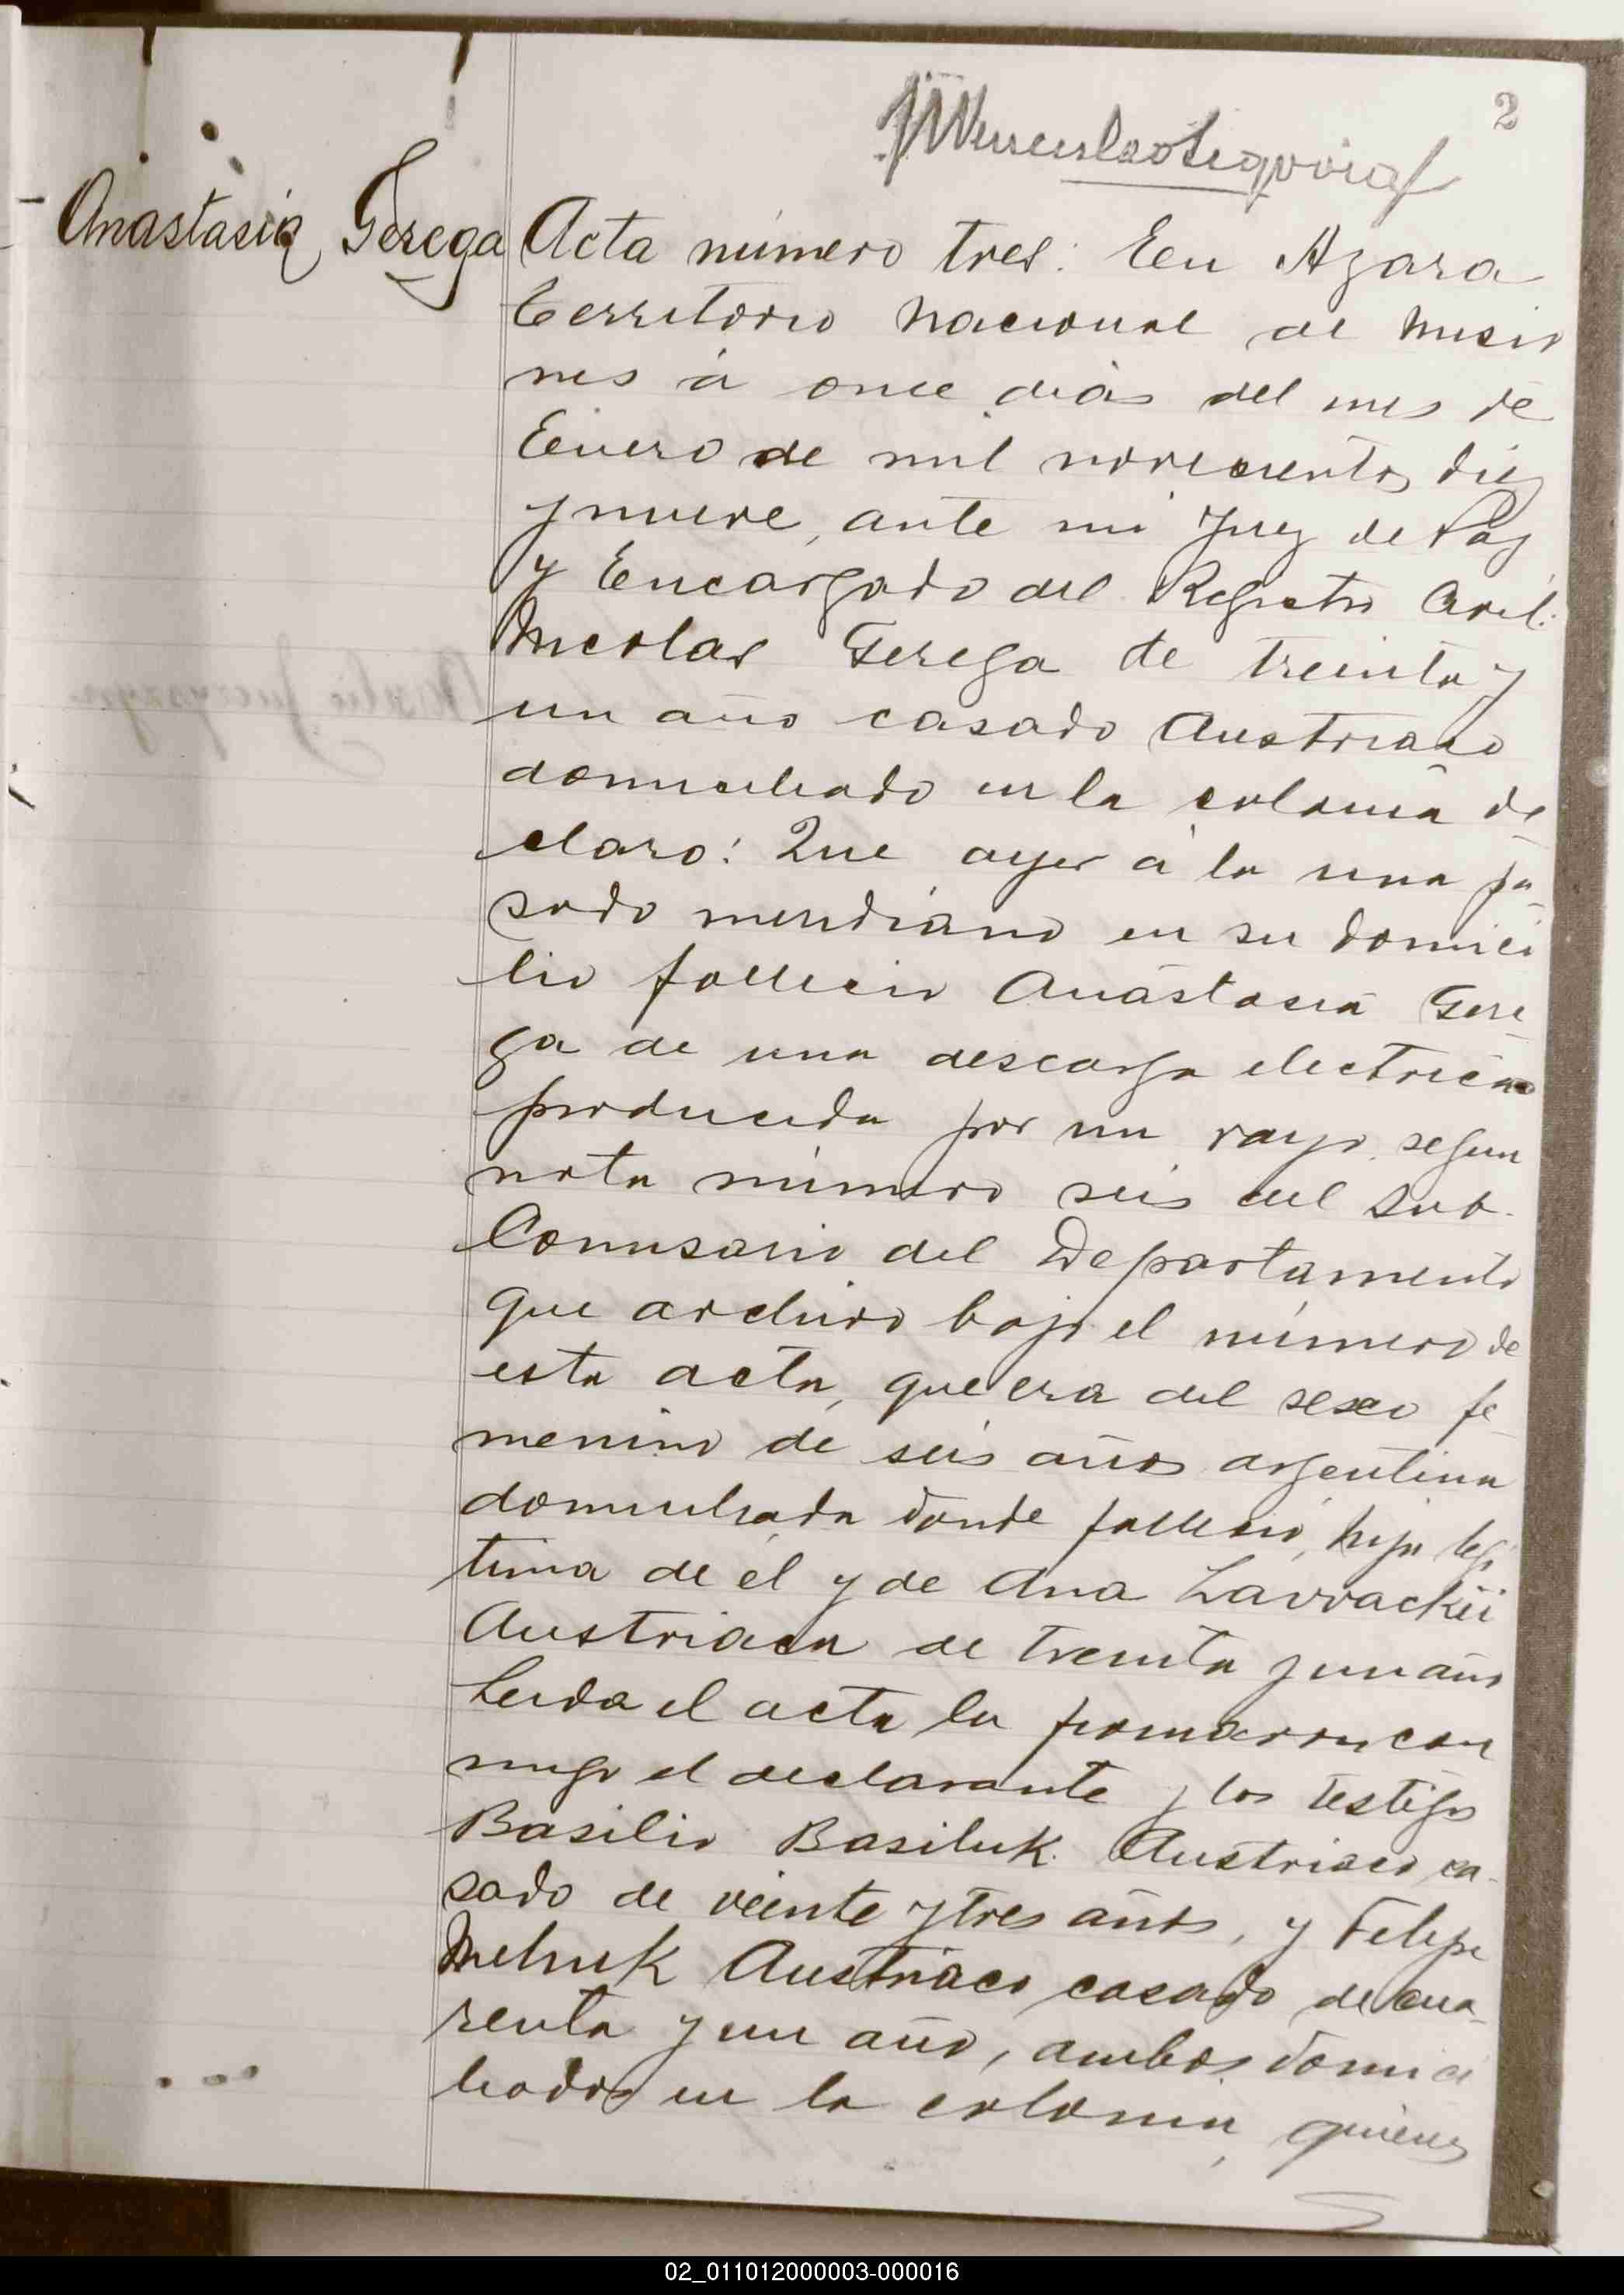 2
Anastasia Gerega
Acta número tres: En Azara
territorio nacional de Misio
nes á once dias del mes de
Enero de mil novecientos diez
y nueve, ante mi Juez de Paz
y Encargado del Registro Civil:
Nicolas Gerega de treinta y
un año casado Austriaco
domiciliado en la colonia de
claro: Que ayer á la una pa
sado meridiano en su domici
lio falleció Anastasia Gere
ga de una descarga electrica
producida por un rayo segun
nota número seis del Sub-
Comisario del Departamento
que archivo bajo el número de
esta acta, que era del sexo fe
menino de seis años argentina
domiciliada donde falleció, hija legi
tima de él y de Ana Lavrackii
Austriaca de treinta y un año
Leida el acta la firmaron con
migo el declarante y los testigos
Basilio Basiluk Austriaco ca-
sado de veinte y tres años, y Felipe
Melnik Austriaco casado de cua-
renta y un año, ambos domici
liados en la colonia, quienes
02_011012000003-000016